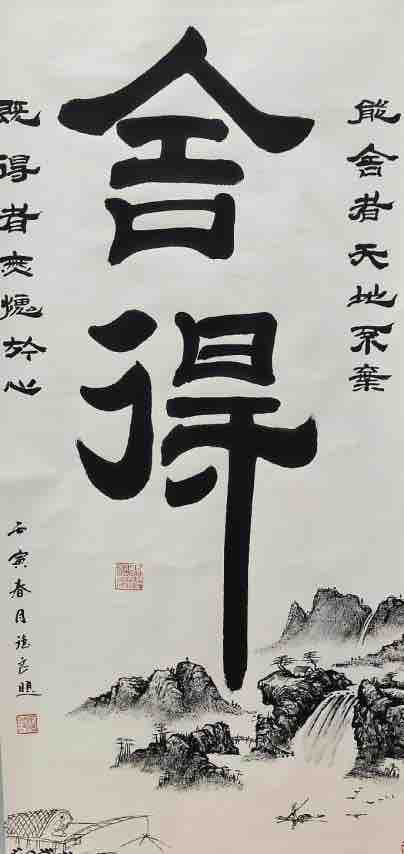 能舍者天地不棄
舍得
既得者無愧於心
壬寅春月良